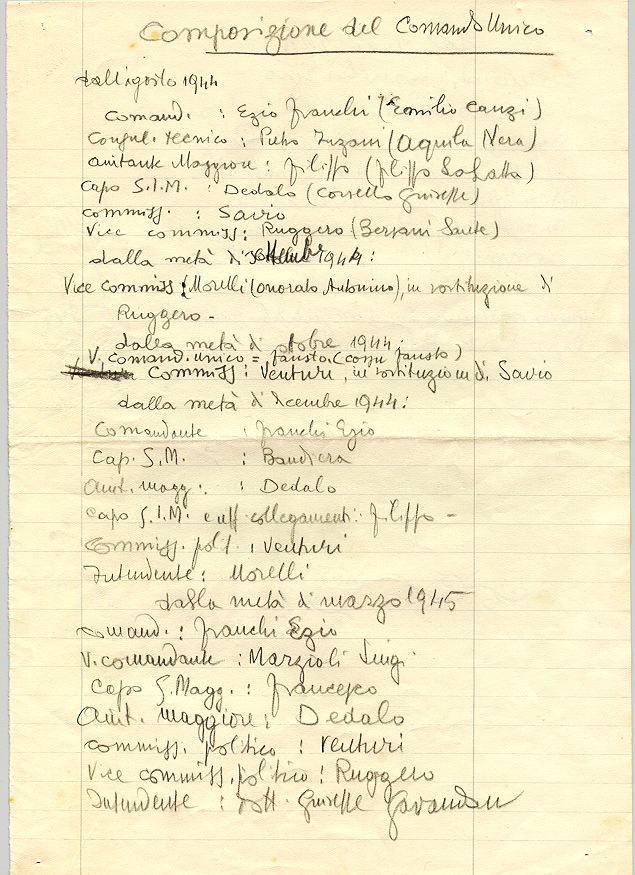 Composizione del Comando Unico
dall'agosto 1944
comand. : Ezio Franchi (Emilio Canzi)
Consul. tecnico : Pietro Inzani (Aquila Nera)
Aiutante Maggiore : Filippo (Filippo
Capo S.I.M. : Dedalo (Giuseppe)
commiss. : Savio
Vice commiss : Ruggero (Bersani Sante)
dalla metà di settembre 1944 :
Vice commiss : Morelli (Onorato Antonino), in sostituzione di
Ruggero -
dalla metà di ottobre 1944 :
V. comand. unico = Fausto (Cossu Fausto)
commiss : Venturi, in sostituzione di Savio
dalla metà di dicembre 1944 :
Comandante : Franchi Ezio
Cap. S.M. : Bandiera
Aiut. magg. : Dedalo
Capo S.I.M. e uff collegamenti : Filippo -
Commiss. polit. : Venturi
Intendente : Morelli
dalla metà di marzo 1945
comand. : Franchi Ezio
V. comandante : Marzioli Luigi
Capo S. Magg. : Francesco
Aiut. maggiore : Dedalo
commiss. politico : Venturi
Vice commiss. politico : Ruggero
Intendente : dott. Giuseppe